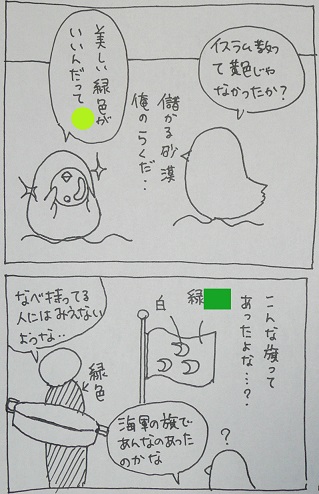 イスラム教っ
て黄色じゃ
なかったか?
儲かる砂漠
俺のらくだ…
美しい緑色が
いいんだって
こんな旗って
あったよな…?
緑
白
なべ持ってる
人にはみえない
ような…
緑色
海軍の旗で
あんなのあった
のかな
?